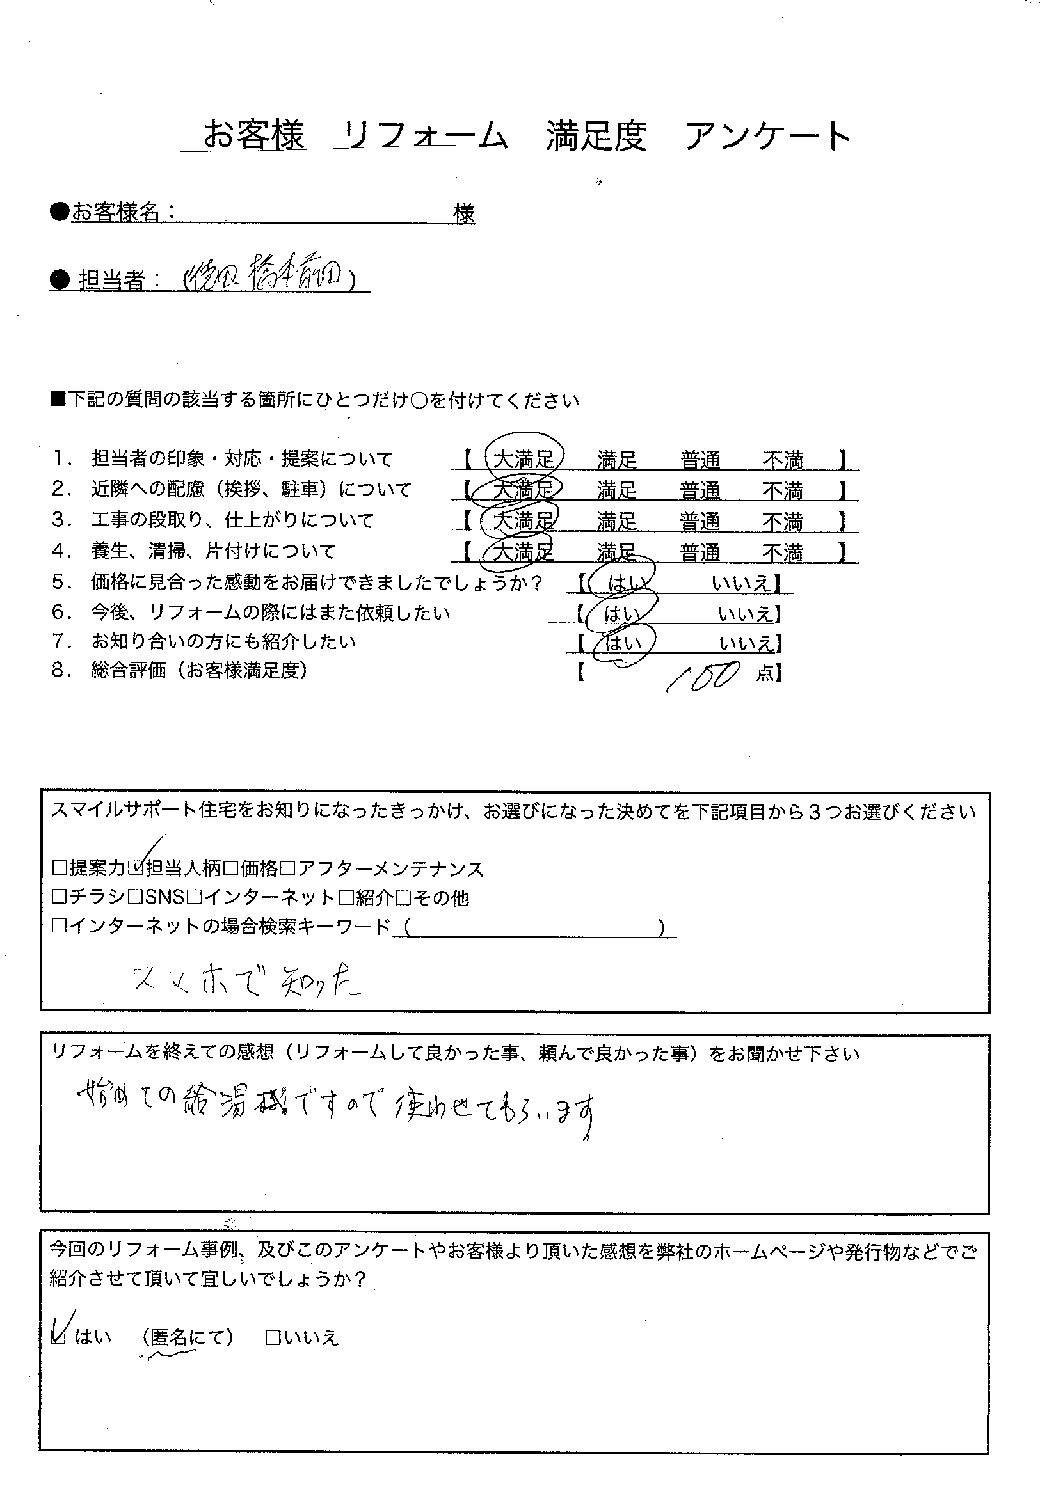 お客様 リフォーム 満足度 アンケート
●お客様名： 様
●担当者： ( 橋本前田)
■下記の質問の該当する箇所にひとつだけ○を付けてください
1. 担当者の印象・対応・提案について 【 大満足 満足 普通 不満 】
2. 近隣への配慮（挨拶、駐車）について 【 大満足 満足 普通 不満 】
3. 工事の段取り、仕上がりについて 【 大満足 満足 普通 不満 】
4. 養生、清掃、片付けについて 【 大満足 満足 普通 不満 】
5. 価格に見合った感動をお届けできましたでしょうか？ 【 はい いいえ】
6. 今後、リフォームの際にはまた依頼したい 【 はい いいえ】
7. お知り合いの方にも紹介したい 【 はい いいえ】
8. 総合評価（お客様満足度） 【 100 点】
スマイルサポート住宅をお知りになったきっかけ、お選びになった決めてを下記項目から３つお選びください
□提案力☑担当人柄□価格□アフターメンテナンス
□チラシ□SNS□インターネット□紹介□その他
□インターネットの場合検索キーワード（ ）
スマホで知った
リフォームを終えての感想（リフォームして良かった事、頼んで良かった事）をお聞かせ下さい
始めての給湯機ですので使わせてもらいます
今回のリフォーム事例、及びこのアンケートやお客様より頂いた感想を弊社のホームページや発行物などでご
紹介させて頂いて宜しいでしょうか？
☑はい （匿名にて） □いいえ